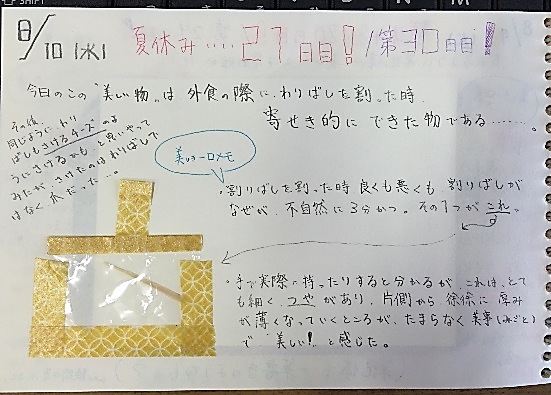 8/10 (水)
夏休み‥‥21日目!/第30日目!
今日のこの"美しい物"は 外食の際に、わりばしを割った時、
寄せき的に できた物である……。
その後、
同じように、わり
ばしもさけるチーズのよ
うにさけるかも、と思いやって
みたが、さけたのはわりばしで
はなく 木だった…。
美しさ一口メモ
・割りばしを割った時 良くも悪くも、割りばしが
なぜが、不自然に3分かつ。その1つが これ。
・手で実際に持ったりすると分かるが、これは、とて
も細く、つやがあり、片側から 徐徐に 厚み
が薄くなっていくところが、たまらなく美事(みごと)
で "美しい!"と感じた。